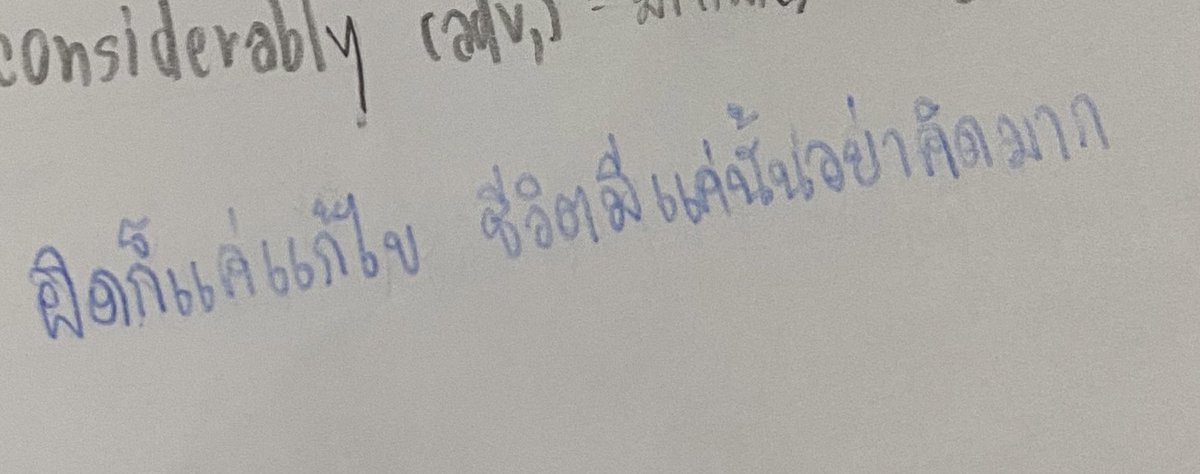 considerably (adv.) -
ผิดก็แค่แก้ไข ชีวิตมีแค่นั้นอย่าคิดมาก